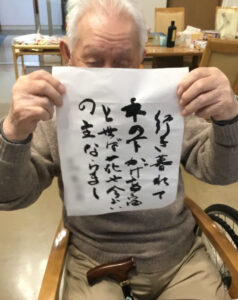 行き暮れて
木の下かげを宿
とせば花や今宵
の主ならまし